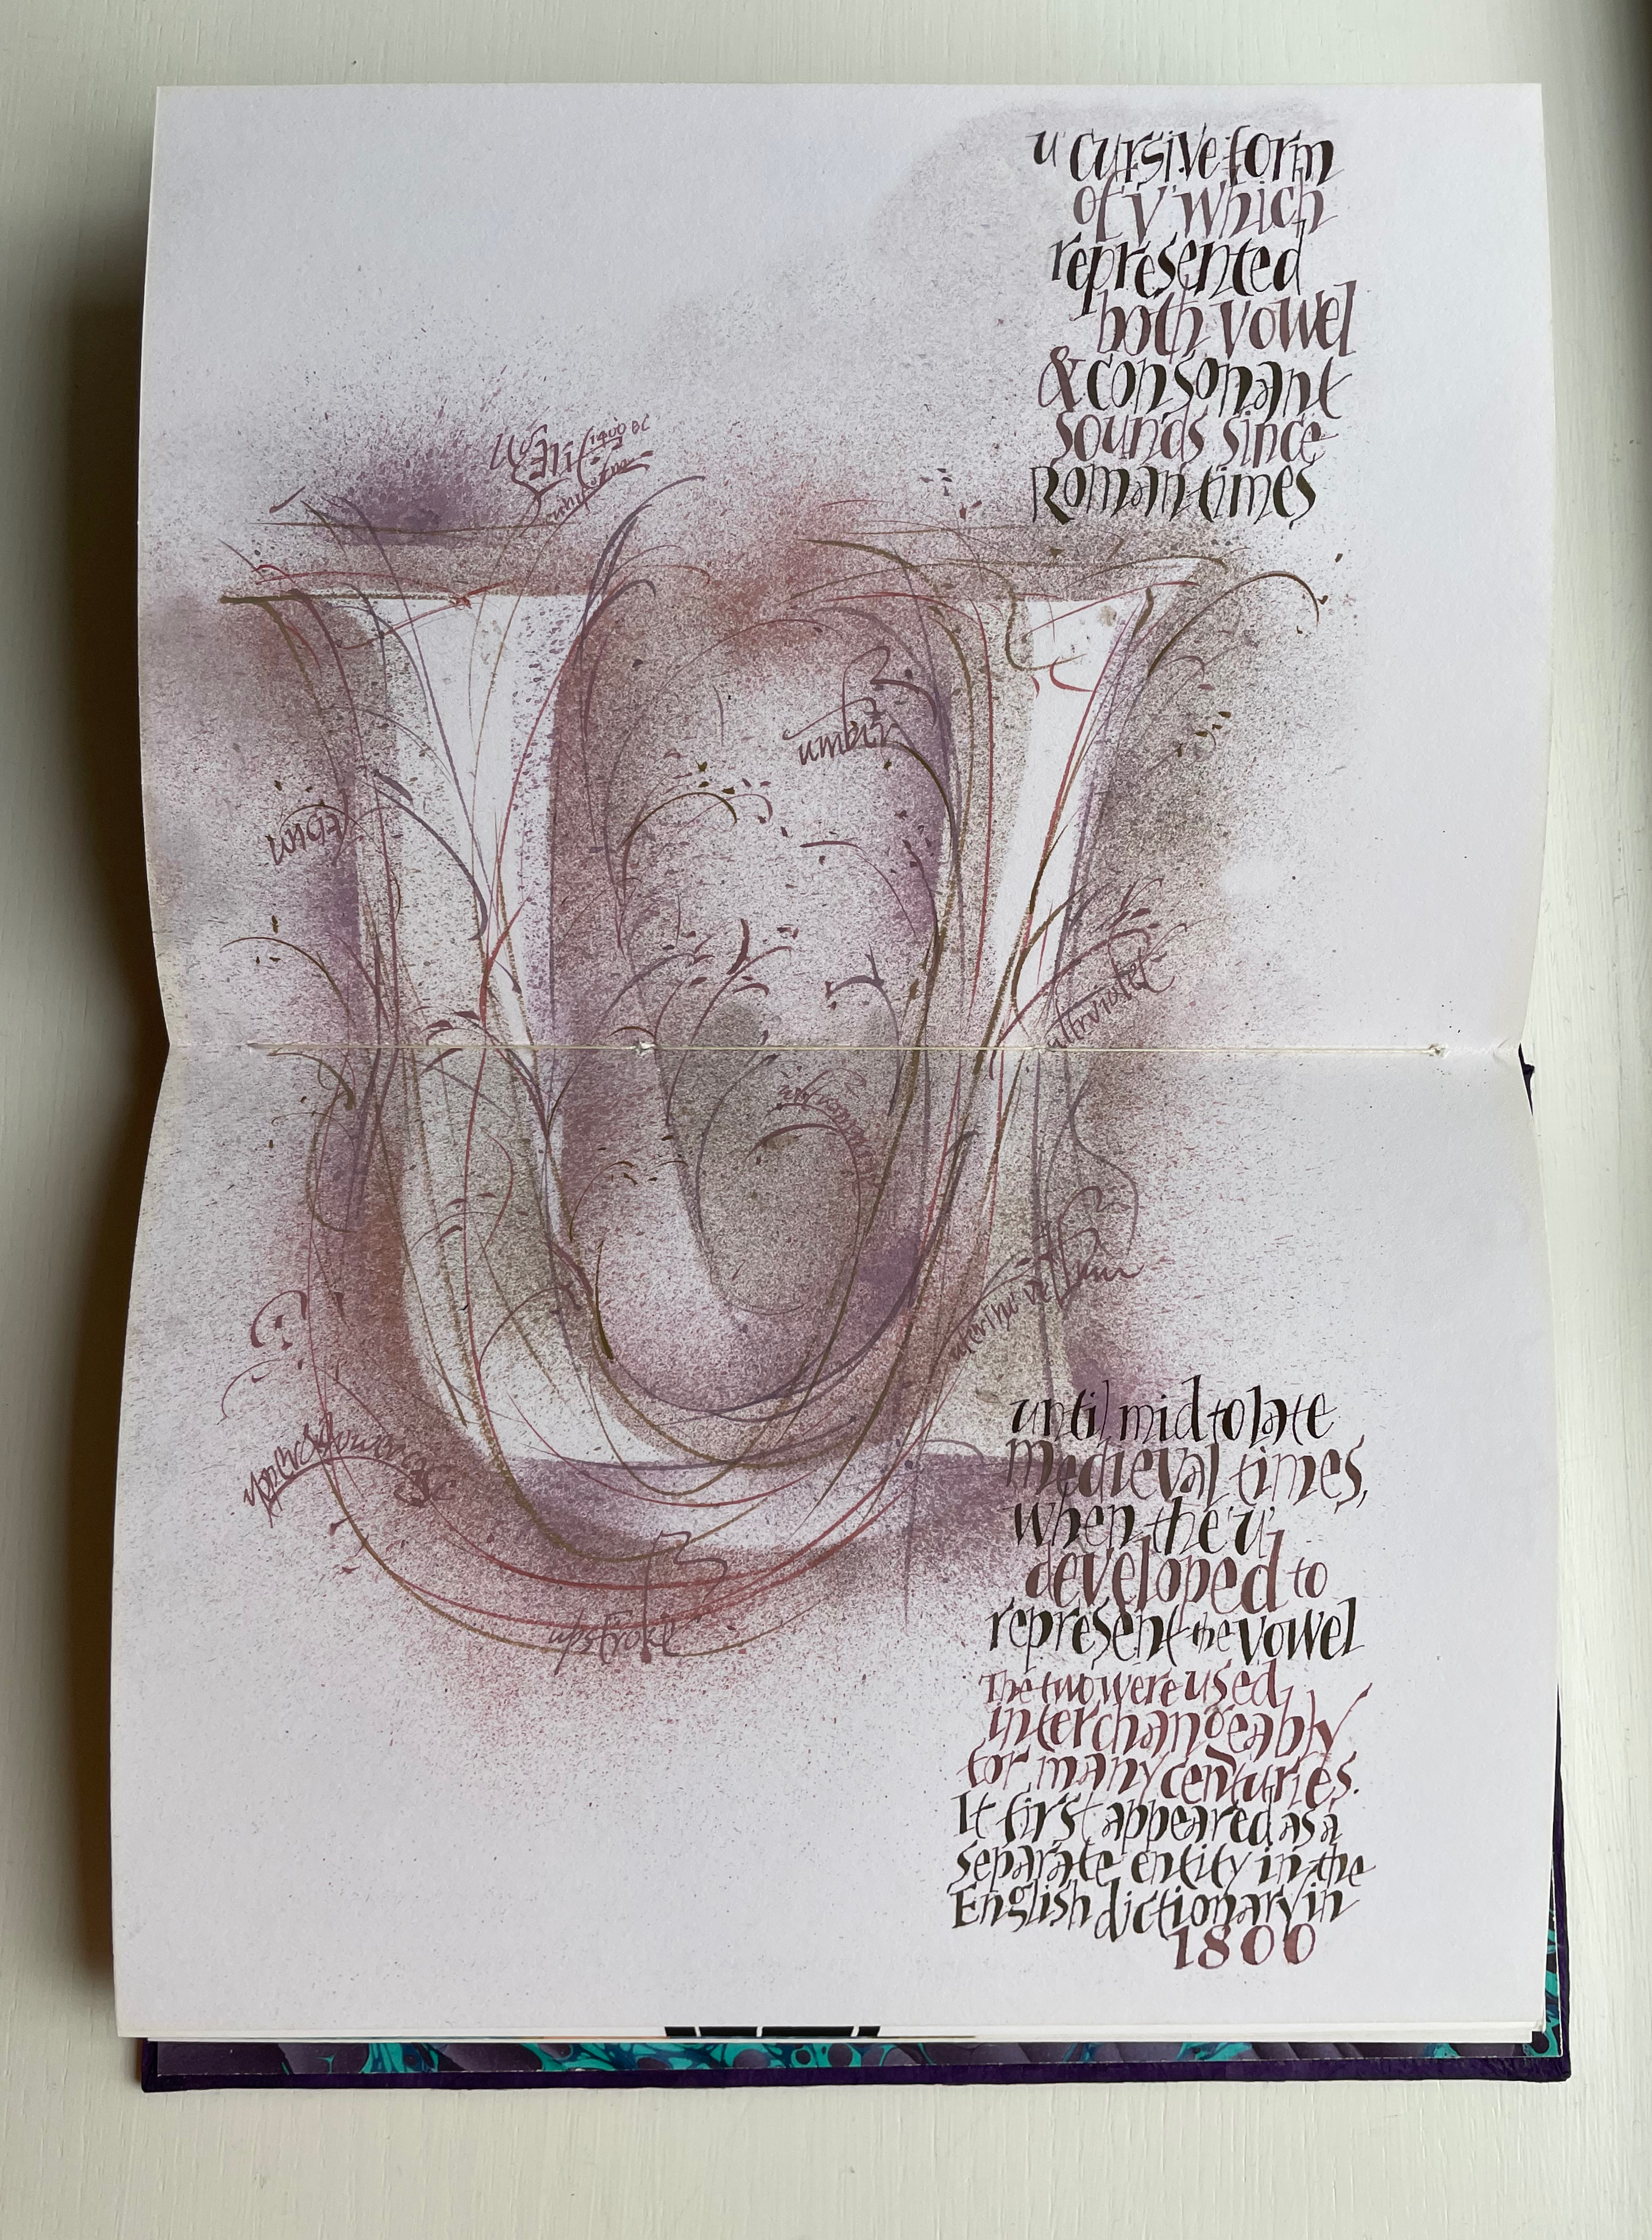 u cursive form
of 'v' which
represented
both vowel
& consonant
sounds since
Roman times
Ugarit 1400 BC
umber
uncial
ultraviolet
uterine vellum
upper & lowercase
upstroke
until mid to late
Medieval times,
when the 'u'
developed to
represent the vowel
The two were used
interchangeably
for many centuries.
It first appeared as a
separate entity in the
English dictionary in
1800